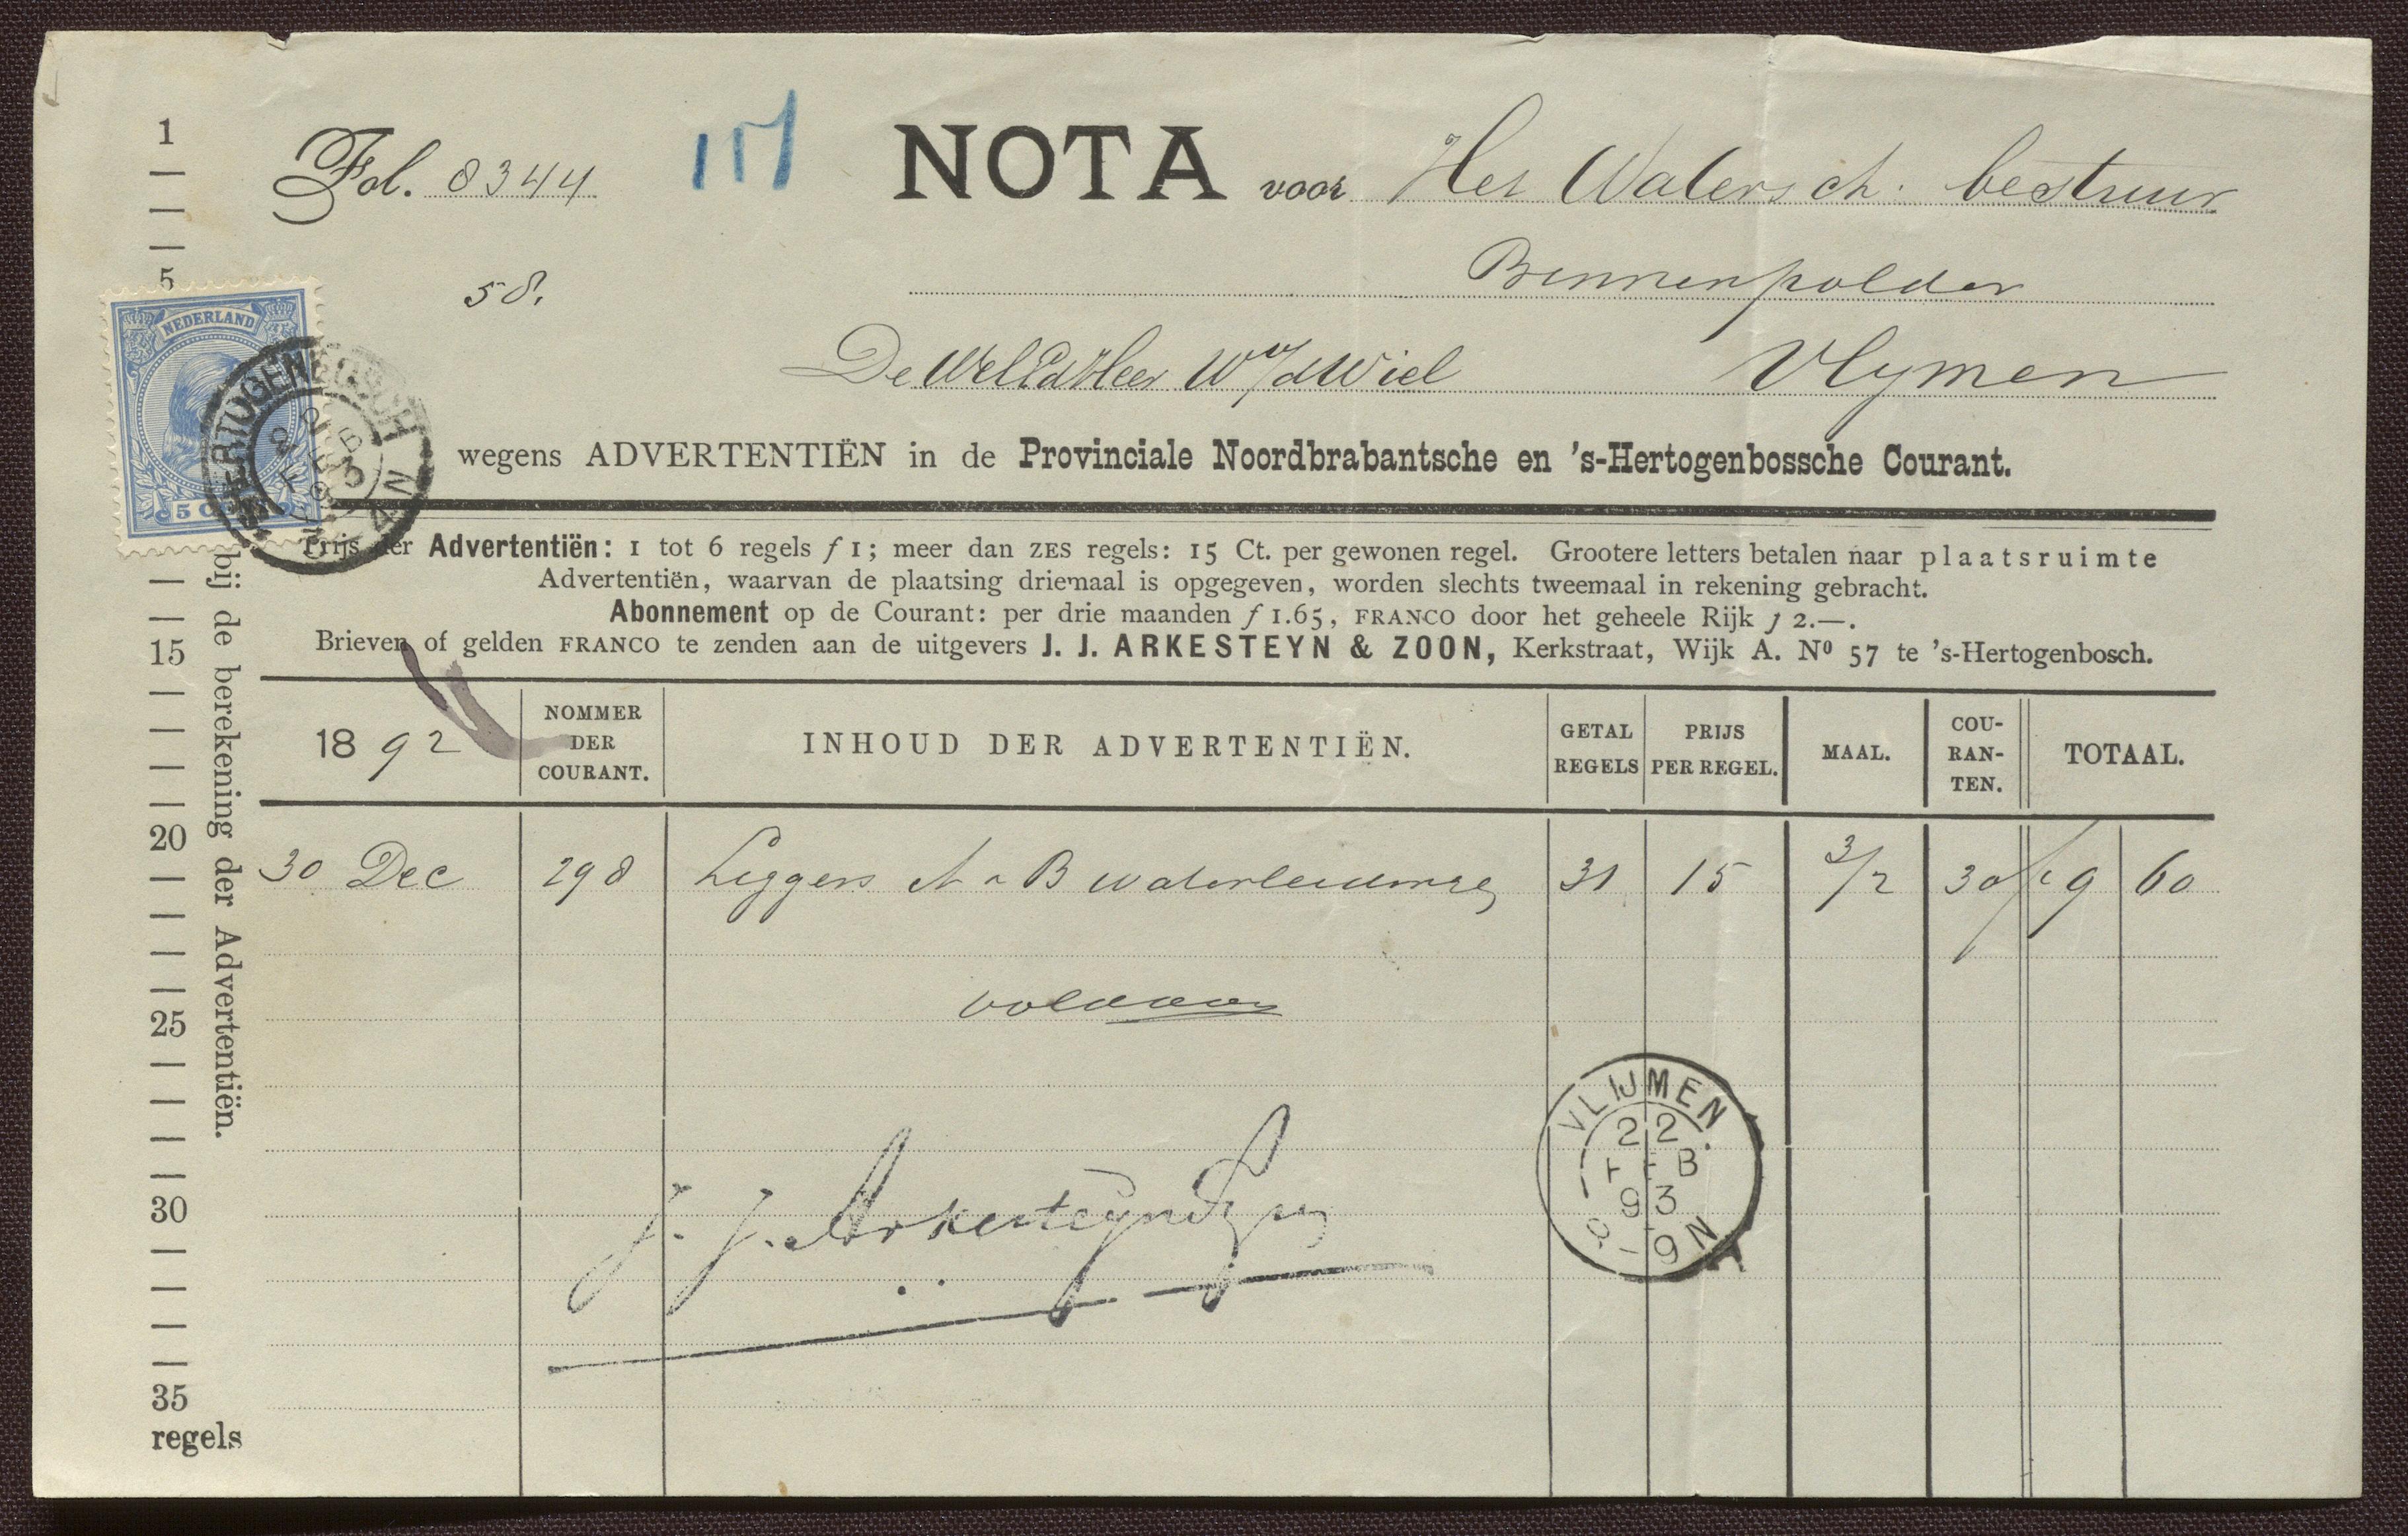 Fol. 8344 NOTA voor Het Watersch. bestuur
58. Binnenpolder
De WelEdHeer W v/d Wiel Vlymen
NEDERLAND
5 CENT
'S HERTOGENBOSCH
22
FEB
93
4 N
wegens ADVERTENTIËN in de Provinciale Noordbrabantsche en 's-Hertogenbossche Courant.
Prijs der Advertentiën: 1 tot 6 regels f 1; meer dan ZES regels: 15 Ct. per gewonen regel. Grootere letters betalen naar plaatsruimte
Advertentiën, waarvan de plaatsing driemaal is opgegeven, worden slechts tweemaal in rekening gebracht.
Abonnement op de Courant: per drie maanden f 1.65, FRANCO door het geheele Rijk f 2.—.
Brieven of gelden FRANCO te zenden aan de uitgevers J. J. ARKESTEYN & ZOON, Kerkstraat, Wijk A. Nº 57 te 's-Hertogenbosch.
1892 NOMMER DER COURANT. INHOUD DER ADVERTENTIËN. GETAL REGELS PRIJS PER REGEL. MAAL. COU-RAN-TEN. TOTAAL.
30 Dec 298 Leggers A - B waterleiding 31 15 3/2 30 f 9 60
voldaan
J. J. Arkesteyn & Zn
VLIJMEN
22
FEB
93
9 N
1
5
15
20
25
30
35
regels
bij de berekening der Advertentiën.